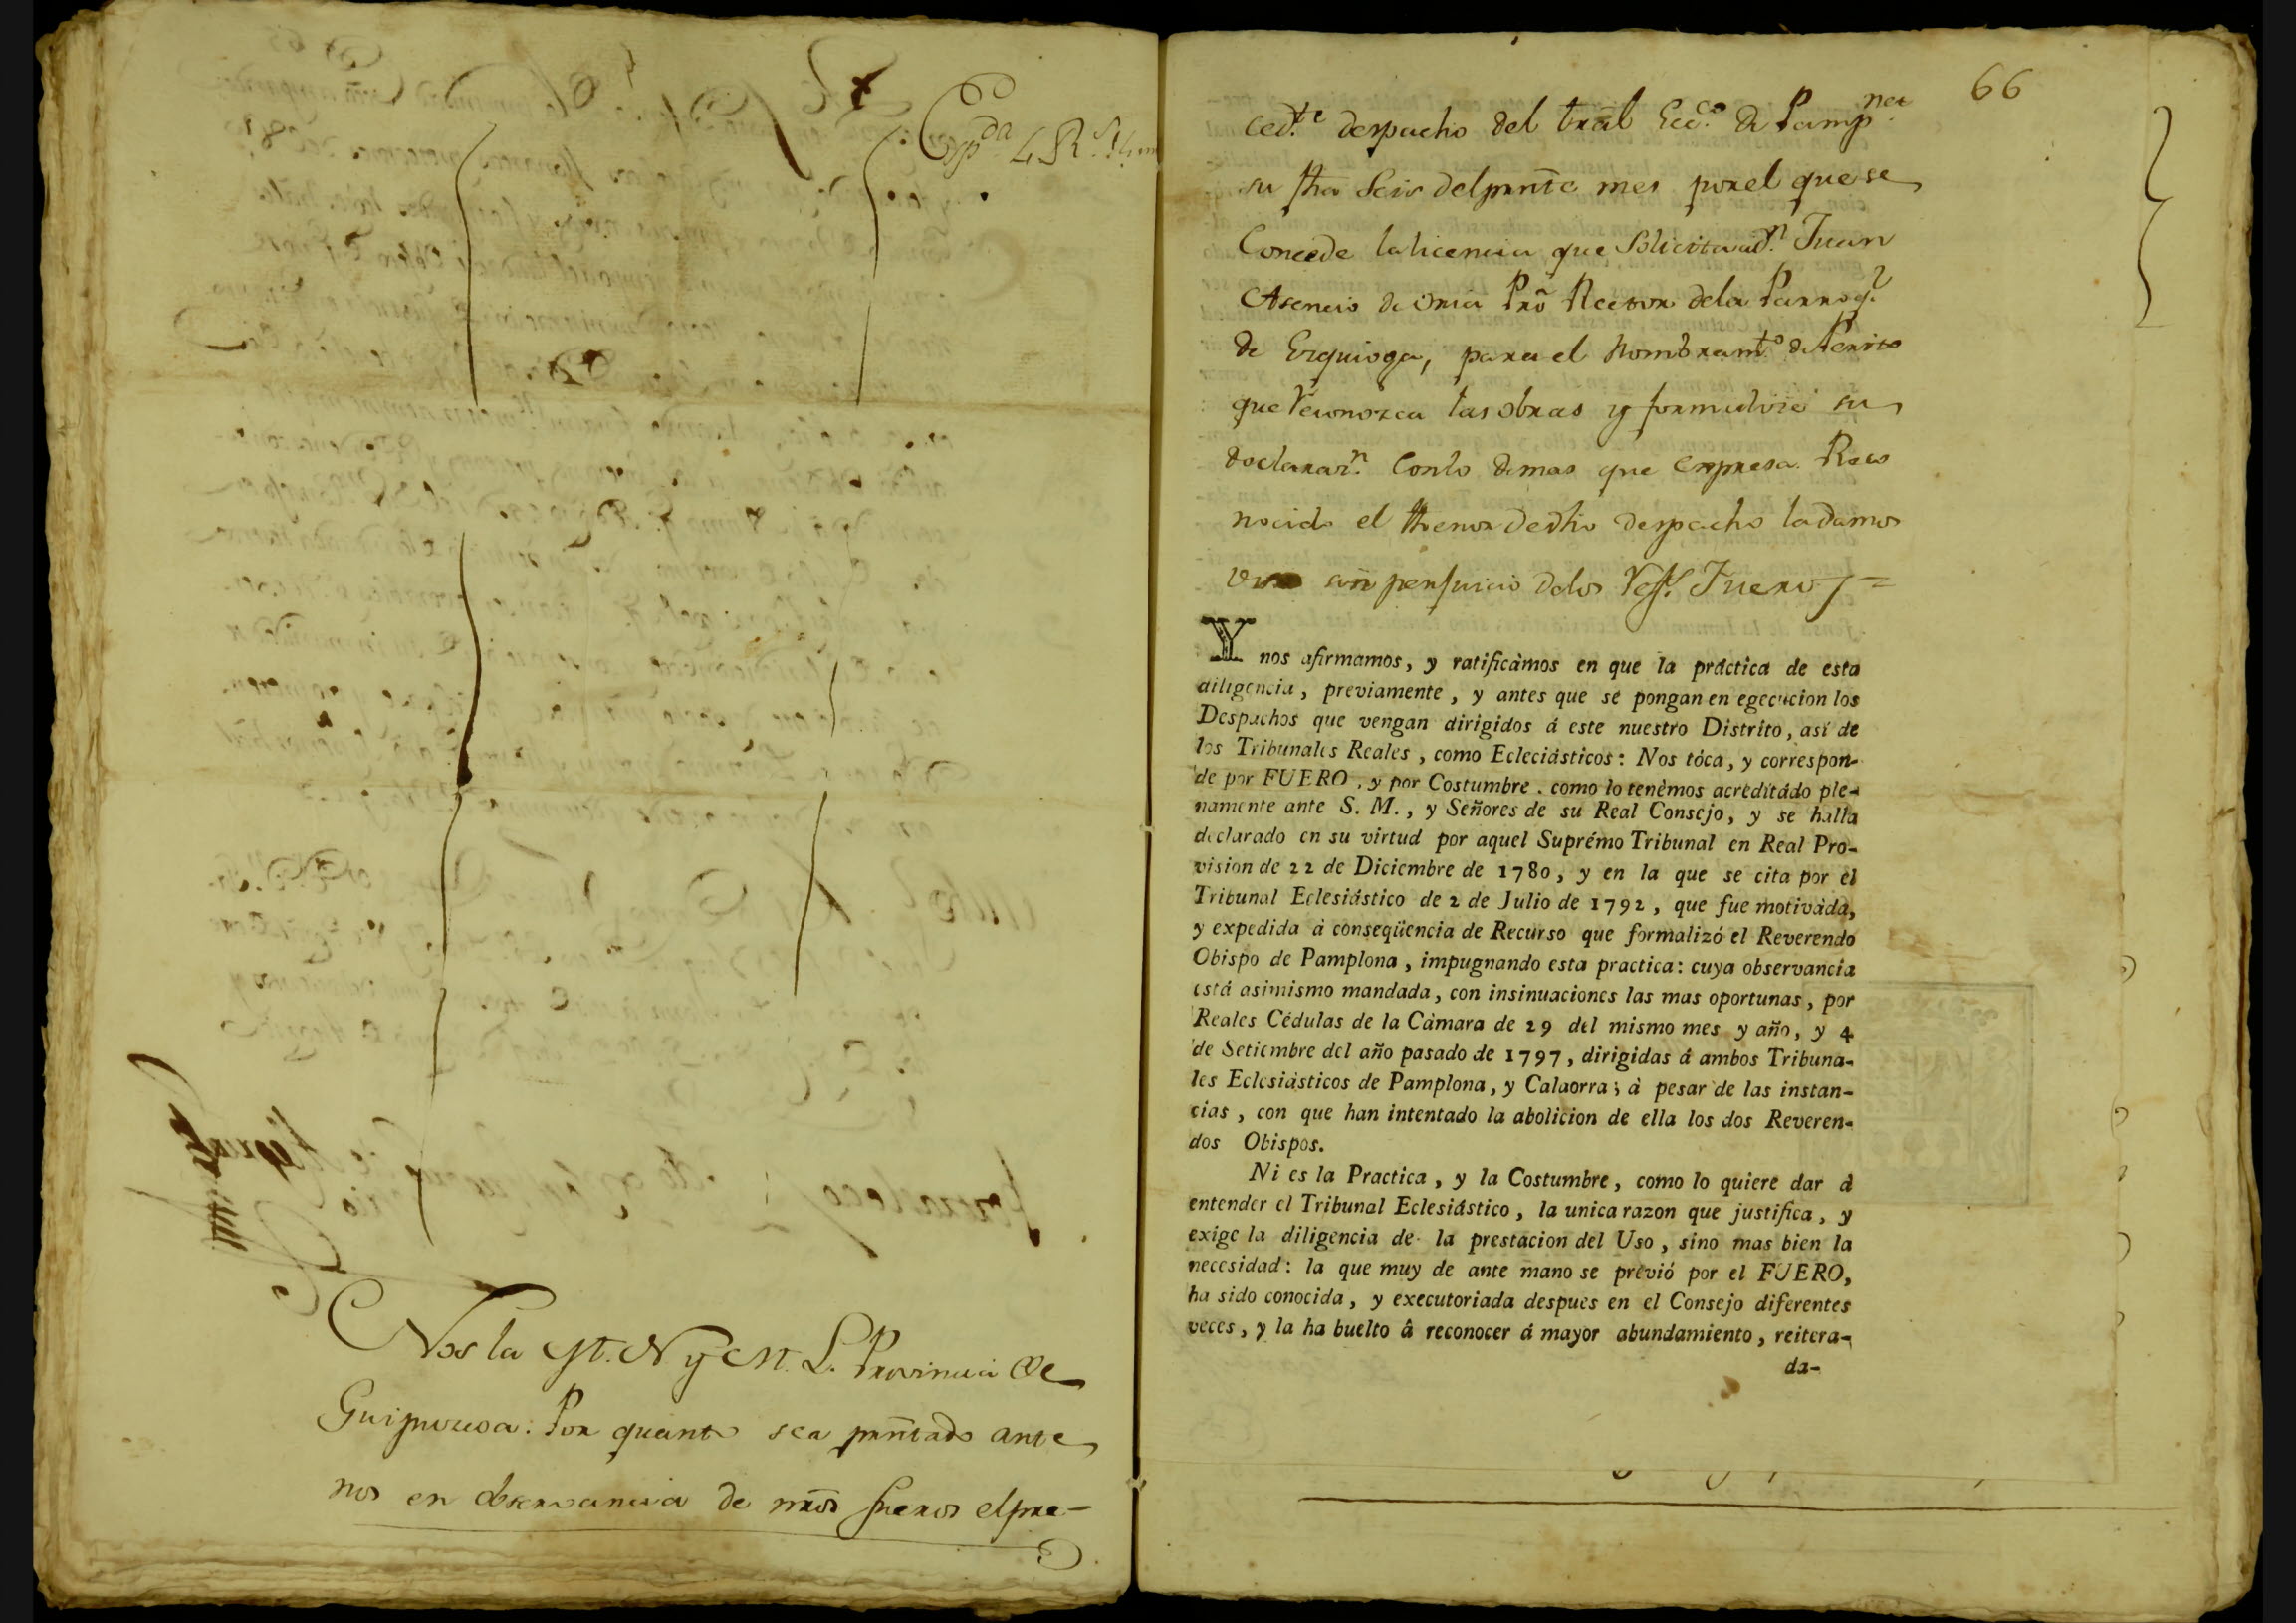 Nos la M. N y M. L. Provincia de
Guipuzcoa: Por quanto sea pñtado ante
nos en observancia de nrõs fueros el pre-
66
ced.te despacho del tral Ecc.co de Pamp.na
su fha Seis del prnte mes por el que se
Concede la licencia que Solicita a d.n Juan
Asencio de Oria Pro Rector dela Parroq.l
de Ezquioga, para el Nombram.to de Perito
que reconozca las obras y formalize su
declarac.n Con lo demas que expresa. Reco
nocido el thenor de dho despacho la damos
uso sin perjuicio delos
Y nos afirmamos, y ratificàmos en que la práctica de esta
diligencia, previamente, y antes que se pongan en egecucion los
Despachos que vengan dirigidos á este nuestro Distrito, así de
los Tribunales Reales, como Ecleciásticos: Nos tóca, y correspon-
de por FUERO, y por Costumbre, como lo tenèmos acreditádo ple-
namente ante S. M., y Señores de su Real Consejo, y se halla
declarado en su virtud por aquel Suprémo Tribunal en Real Pro-
vision de 22 de Diciembre de 1780, y en la que se cita por el
Tribunal Eclesiástico de 2 de Julio de 1792, que fue motivàda,
y expedida à conseqüencia de Recurso que formalizó el Reverendo
Obispo de Pamplona, impugnando esta practica: cuya observancia
está asimismo mandada, con insinuaciones las mas oportunas, por
Reales Cédulas de la Càmara de 29 del mismo mes y año, y 4
de Setiembre del año pasado de 1797, dirigidas á ambos Tribuna-
les Eclesiàsticos de Pamplona, y Calaorra; à pesar de las instan-
cias, con que han intentado la abolicion de ella los dos Reveren-
dos Obispos.
Ni es la Practica, y la Costumbre, como lo quiere dar à
entender el Tribunal Eclesiástico, la unica razon que justifica, y
exige la diligencia de la prestacion del Uso, sino mas bien la
necesidad: la que muy de ante mano se previó por el FUERO,
ha sido conocida, y executoriada despues en el Consejo diferentes
veces, y la ha buelto â reconocer á mayor abundamiento, reitera-
da-